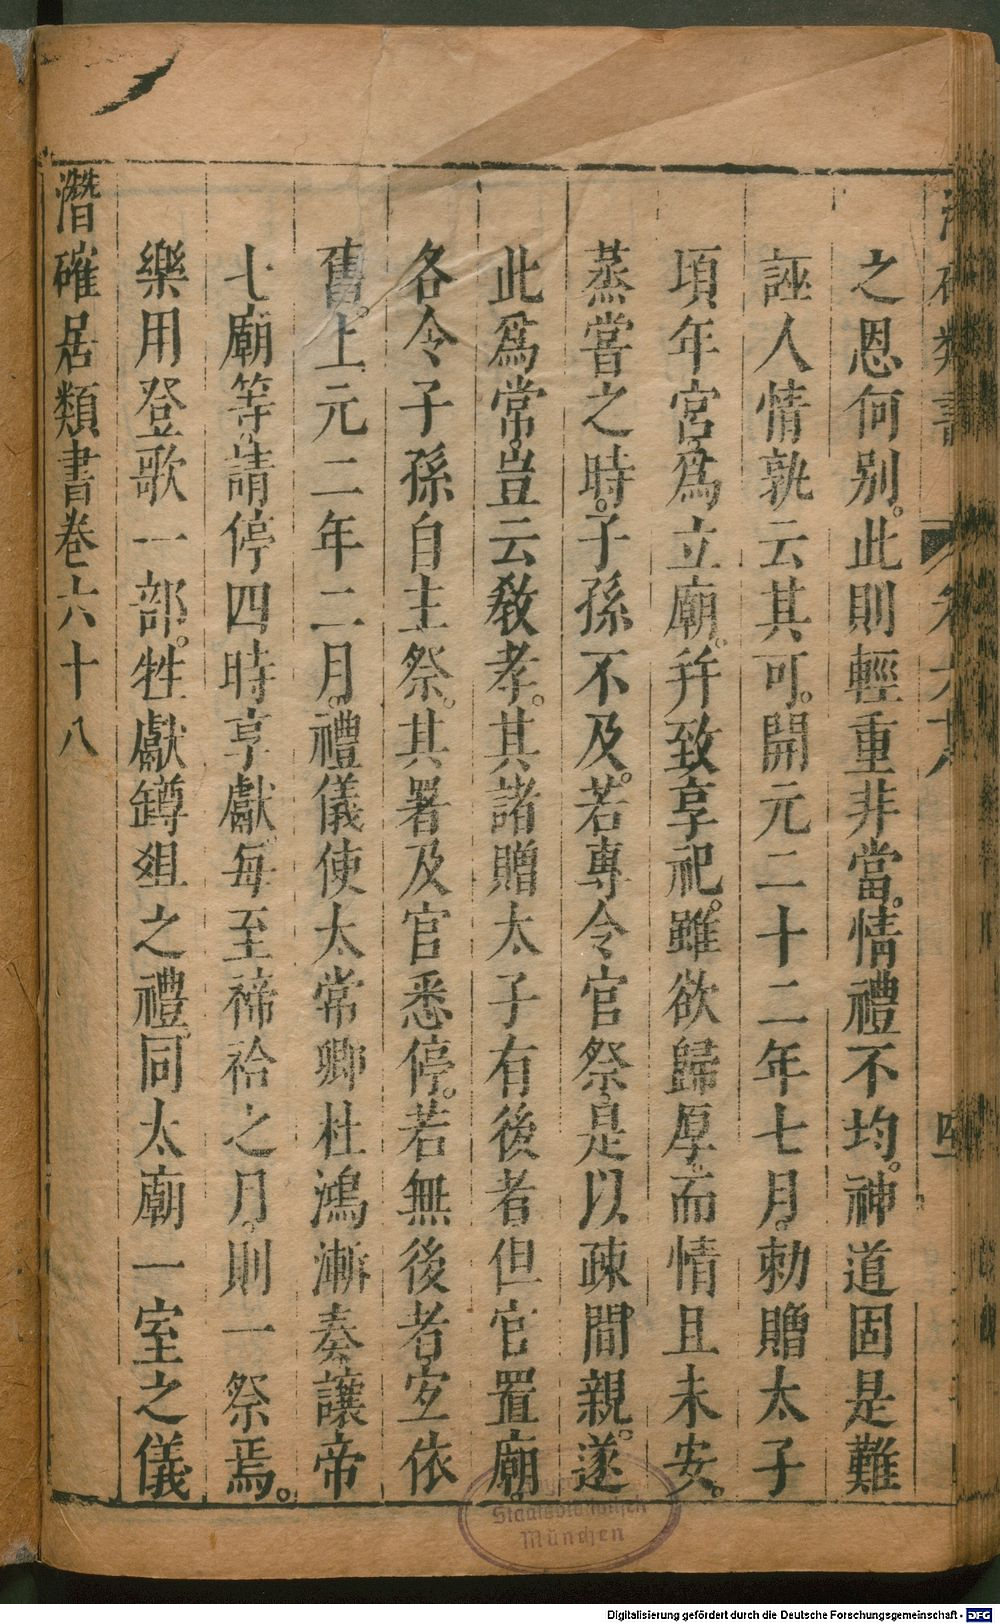 之恩何別。此則輕重非當。情禮不均。神道固是難
誣人情孰云其可。開元二十二年七月。勅贈太子
頃年宮爲立廟。幷致享祀。雖欲歸厚。而情且未安。
蒸嘗之時。子孫不及。若專令官祭。是以疎間親。遂
此爲常。豈云敎孝。其諸贈太子有後者但官置廟。
各令子孫自主祭。其署及官悉停。若無後者宐依
舊。上元二年二月。禮儀使太常卿杜鴻漸奏。讓帝
七廟等。請停四時享獻。每至禘祫之月。則一祭焉。
樂用登歌一部。牲獻罇爼之禮。同太廟一室之儀
潛確居類書卷六十八
Staatsbibliothek
München
Digitalisierung gefördert durch die Deutsche Forschungsgemeinschaft - DFG